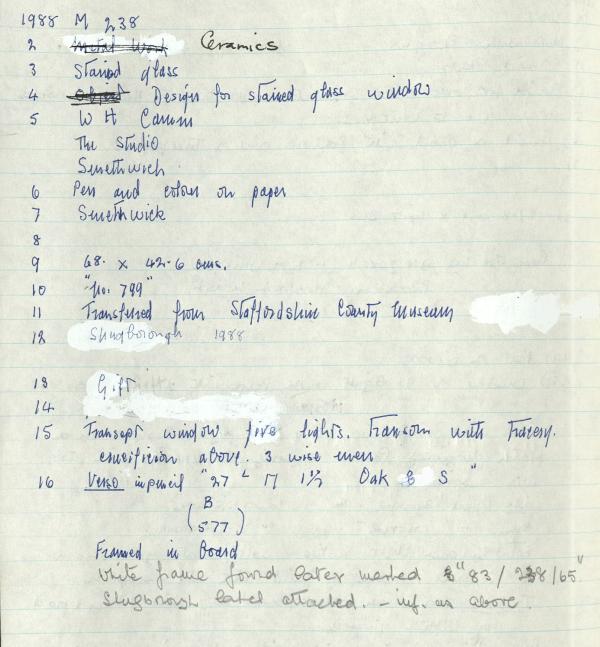 1988 M 238
2 Metal Work Ceramics
3 Stained glass
4 Object Design for stained glass window
5 W H Camm
The Studio
Smethwich
6 Pen and colour on paper
7 Smethwick
8
9 68. x 42.6 cms.
10 "No. 799"
11 Transferred from Staffordshire County Museum
12 Shugborough 1988
13 Gift
14
15 Transept window five lights. Transom with Tracery.
crucifixion above. 3 wise men
16 Verso in pencil "27 Oak & S "
( B
577 )
Framed in Board
White frame found later marked "83/238/65"
Shugborough label attached. - inf. as above.